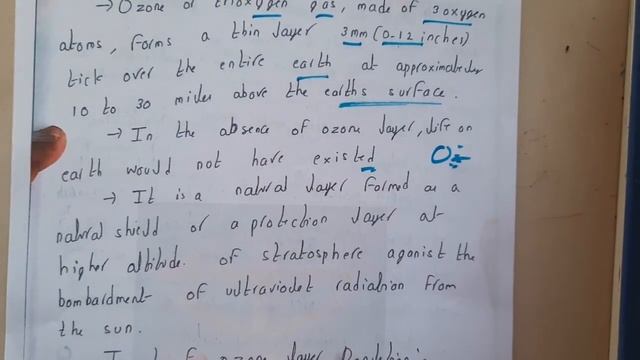 → Ozone or trioxygen gas, made of 3 oxygen
atoms, forms a thin layer 3mm (0-12 inches)
tick over the entire earth at approximately
10 to 30 miles above the earths surface.
→ In the absence of ozone layer, life on
earth would not have existed O₃
→ It is a natural layer formed as a
natural shield or a protection layer at
higher altitude. of stratosphere aganist the
bombardment of ultraviolet radiation from
the sun.
ozone layer